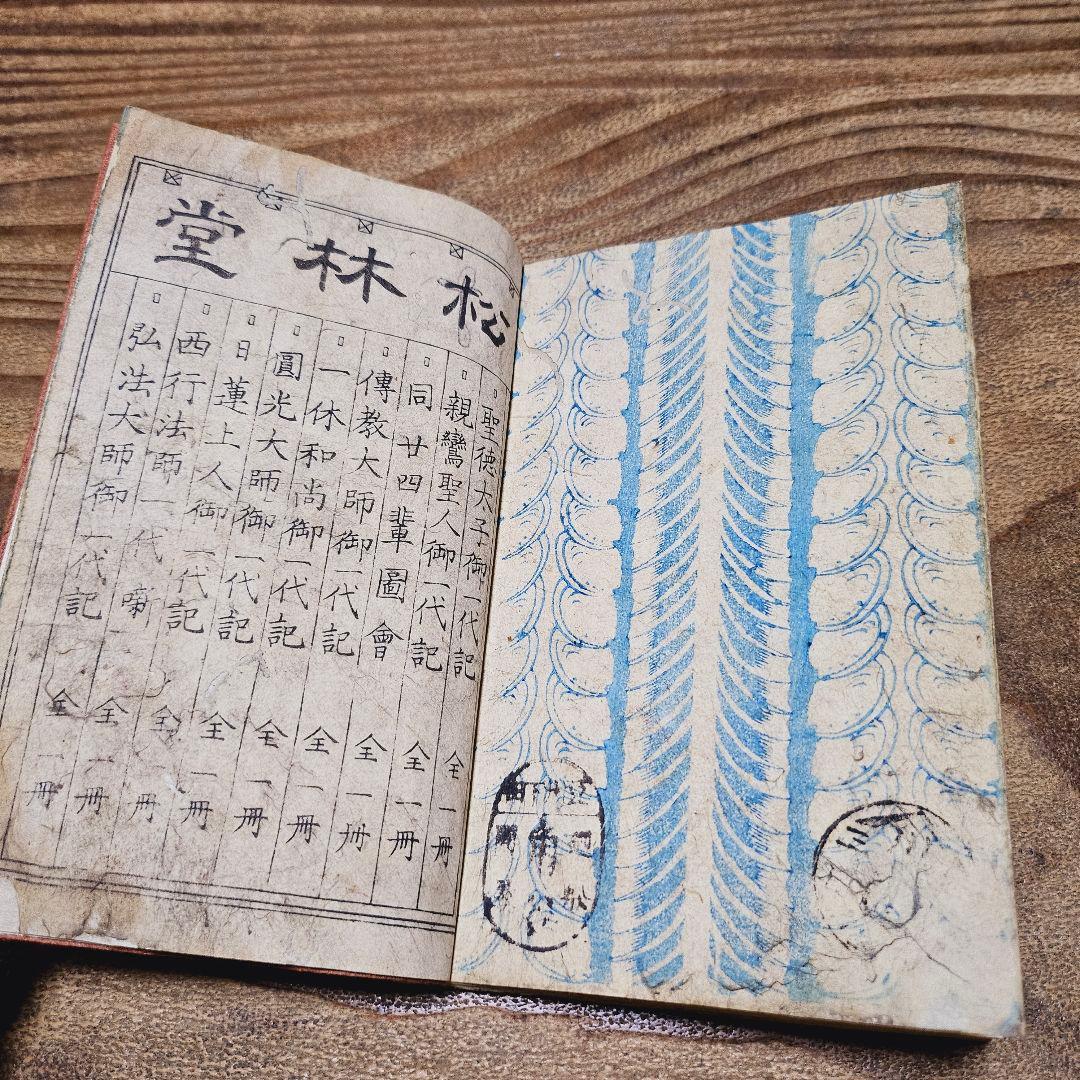 松林堂
聖徳太子御一代記 全一冊
親鸞聖人御一代記 全一冊
同廿四輩圖會 全一冊
傳教大師御一代記 全一冊
一休和尚御一代記 全一冊
圓光大師御一代記 全一冊
日蓮上人御一代記 全一冊
西行法師一代 全一冊
弘法大師御一代記 全一冊